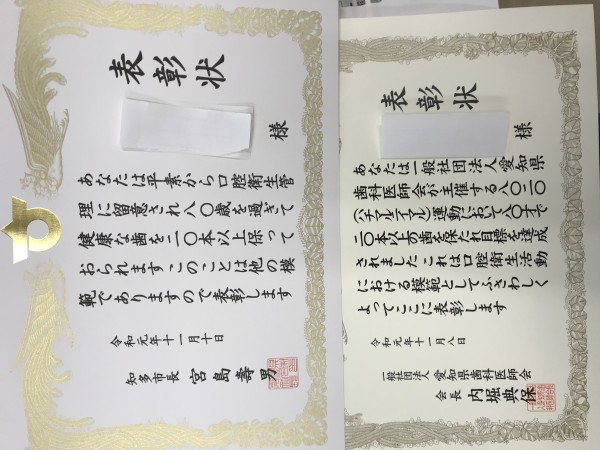 表彰状
様
あなたは平素から口腔衛生管
理に留意され八〇歳を過ぎて
健康な歯を二〇本以上保って
おられますこのことは他の模
範でありますので表彰します
令和元年十一月十日
知多市長 宮島壽男
表彰状
様
あなたは一般社団法人愛知県
歯科医師会が主催する八〇二〇
(ハチマルニイマル)運動において、八〇才で
二〇本以上の歯を保たれ目標を達成
されました これは口腔衛生活動
における模範としてふさわしく
よってここに表彰します
令和元年十一月八日
一般社団法人 愛知県歯科医師会
会長 内堀典保